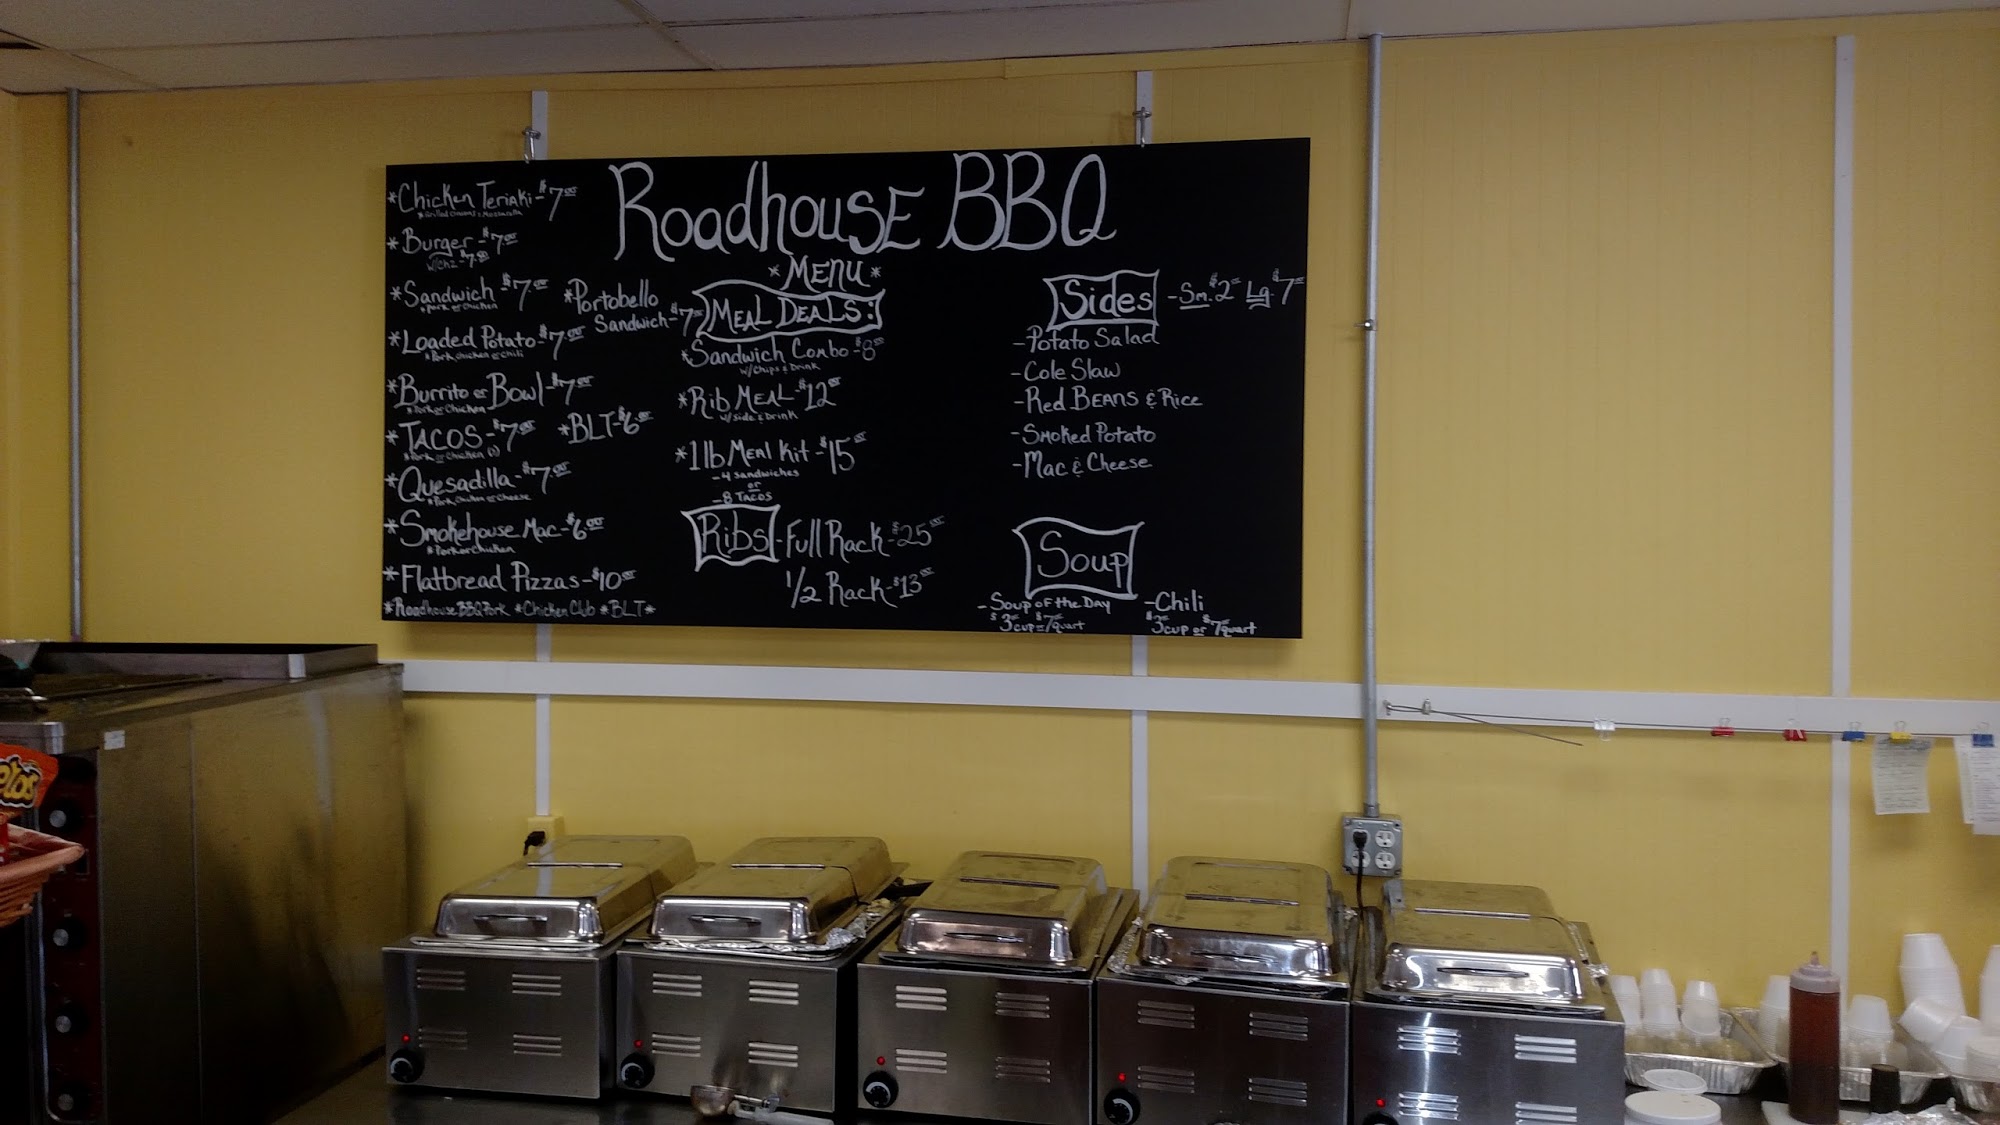 Roadhouse BBQ
*Menu*
*Chicken Teriaki-$7.00
*Grilled Onions & Mozzarella
*Burger-$7.00
w/chz-$7.50
*Sandwich-$7.00
*Pork or Chicken
*Loaded Potato-$7.00
*Pork, chicken or chili
*Burrito or Bowl-$7.00
*Pork or Chicken
*Tacos-$7.00
*Pork or Chicken (3)
*Quesadilla-$7.00
*Pork, Chicken or Cheese
*Smokehouse Mac-$6.00
*Pork or Chicken
*Flatbread Pizzas-$10.00
*Roadhouse BBQ Pork *Chicken Club *BLT*
*Portobello
Sandwich-$7.00
*BLT-$6.00
Meal Deals:
*Sandwich Combo-$8.00
w/Chips & Drink
*Rib Meal-$12.00
w/side & Drink
*1lb Meal Kit-$15.00
-4 sandwiches
or
-8 Tacos
Ribs-Full Rack-$25.00
1/2 Rack-$13.00
Sides-Sm.$2.00 Lg.$7.00
-Potato Salad
-Cole Slaw
-Red Beans & Rice
-Smoked Potato
-Mac & Cheese
Soup
-Soup of the Day
$3 cup or $7 quart
-Chili
$3 cup or $7 quart
etos